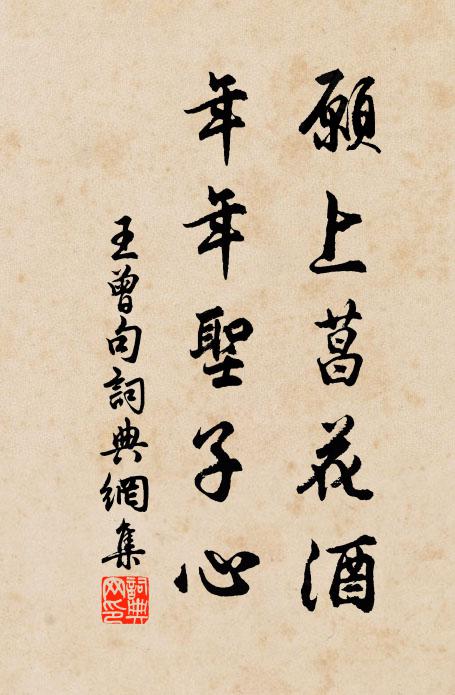 願上菖花酒
年年聖子心
王曾句詞典網集
詞典
网印